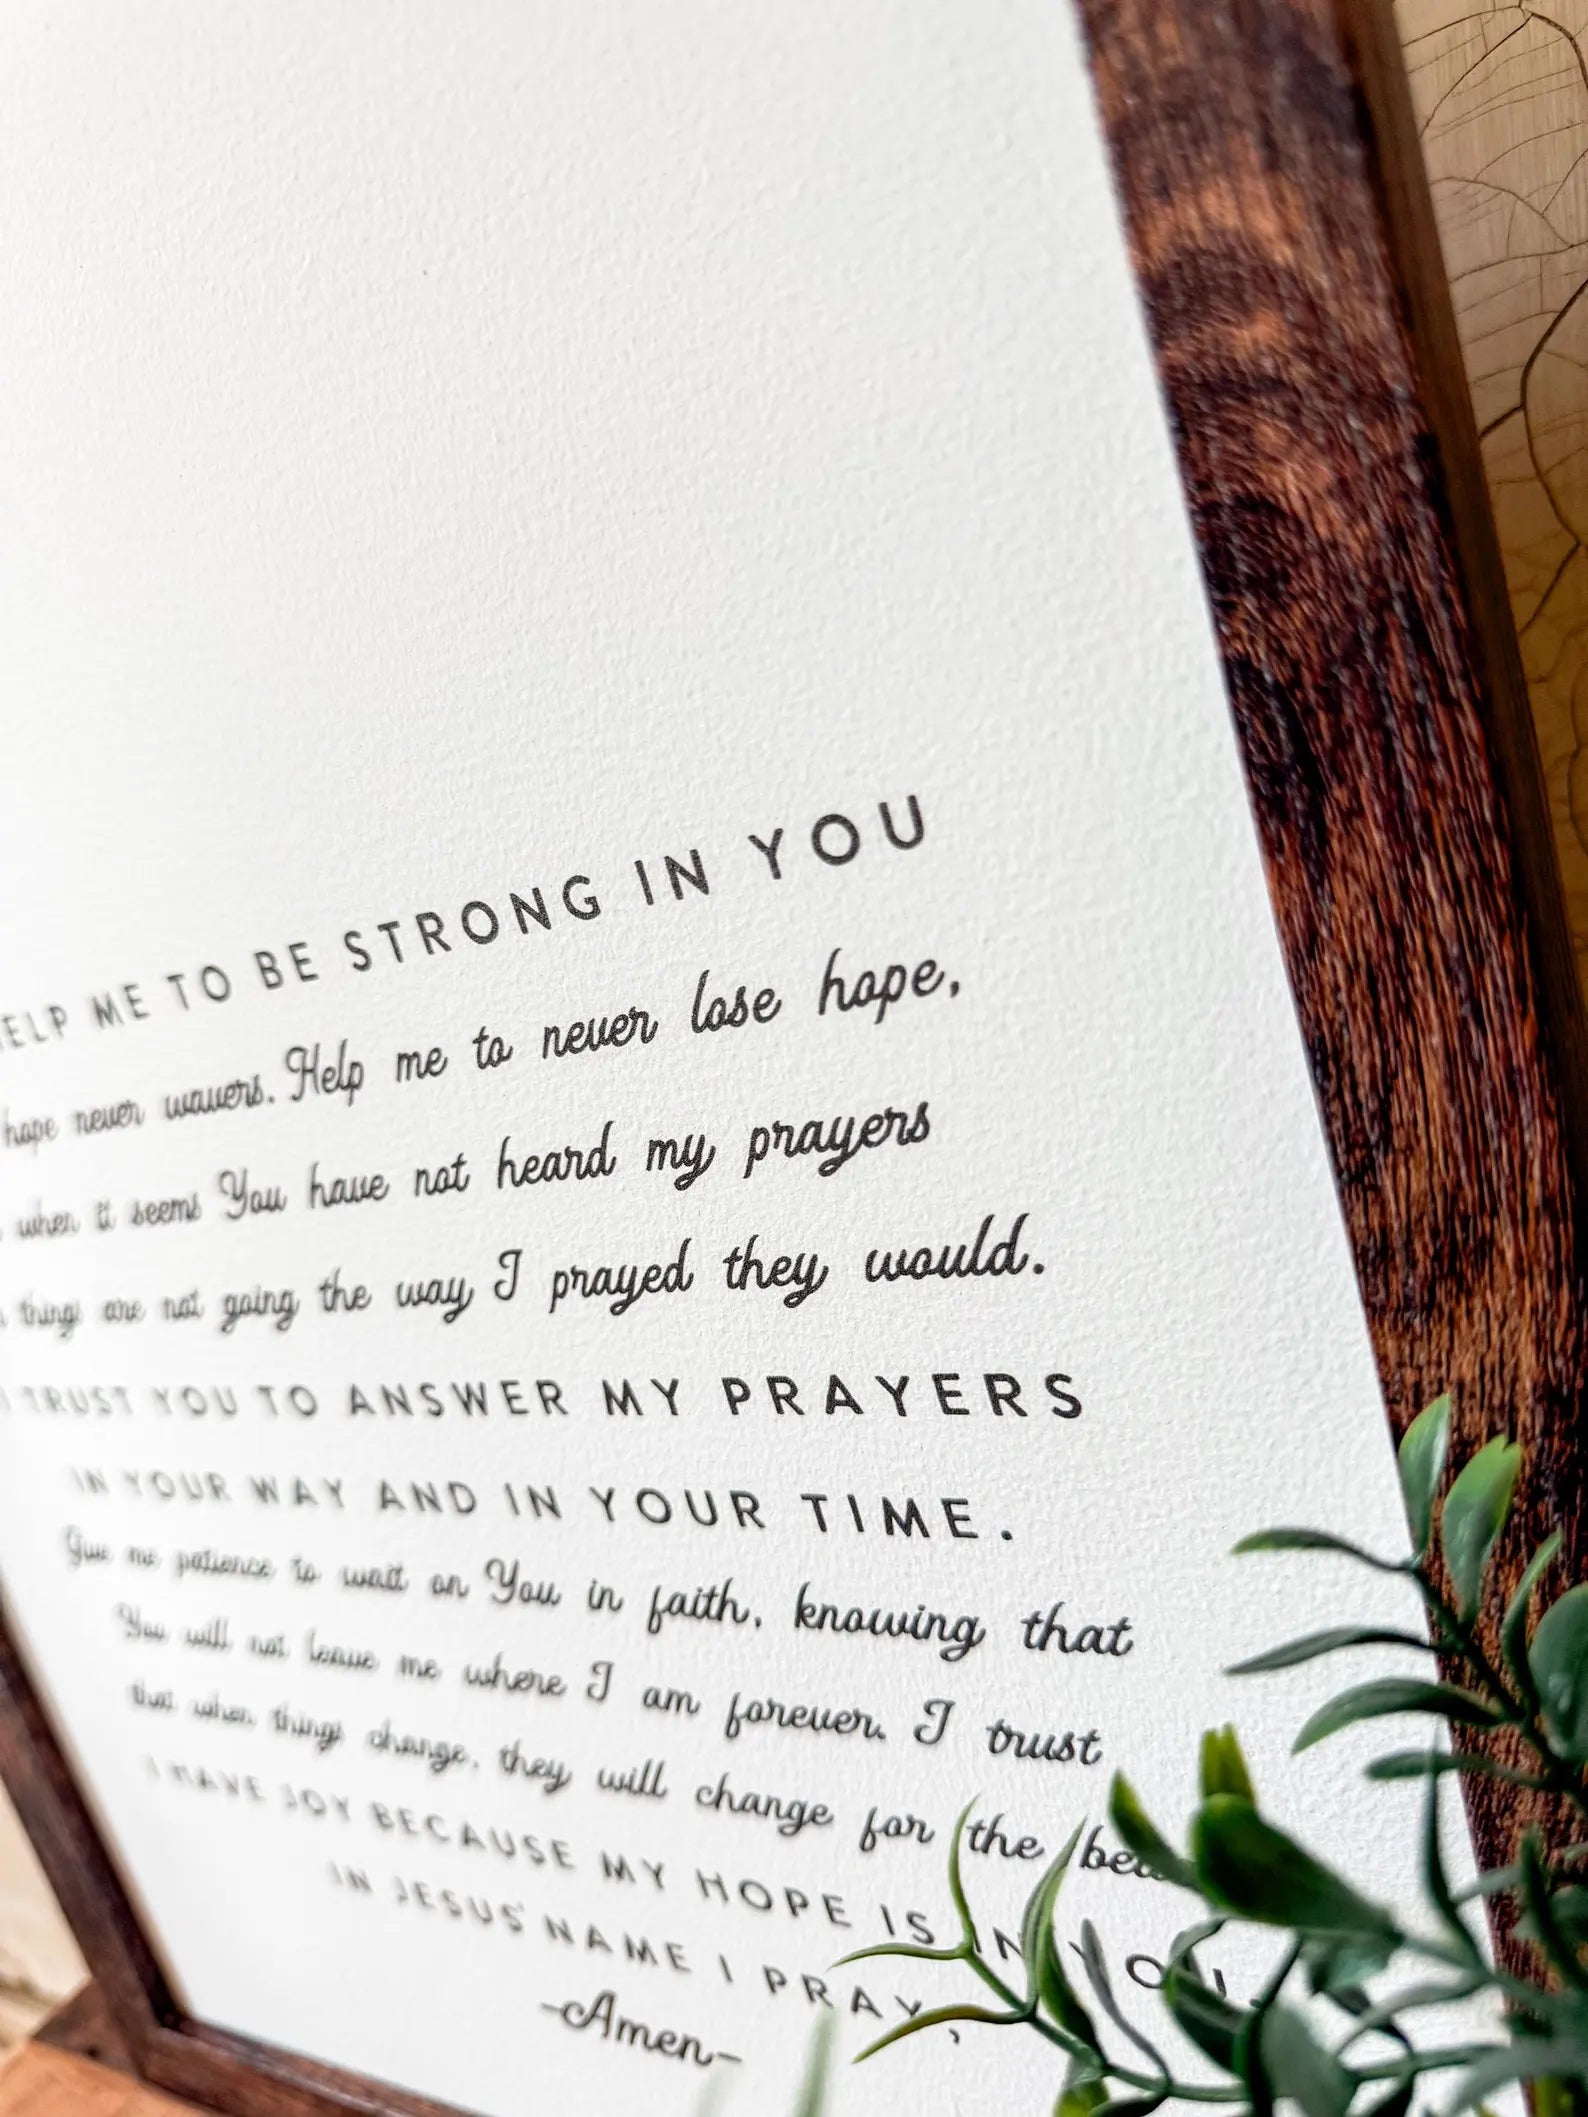 HELP ME TO BE STRONG IN YOU
hope never wavers. Help me to never lose hope,
when it seems You have not heard my prayers
things are not going the way I prayed they would.
I TRUST YOU TO ANSWER MY PRAYERS
IN YOUR WAY AND IN YOUR TIME.
Give me patience to wait on You in faith, knowing that
You will not leave me where I am forever. I trust
that when things change, they will change for the
I HAVE JOY BECAUSE MY HOPE IS IN YOU.
IN JESUS' NAME I PRAY,
-Amen-